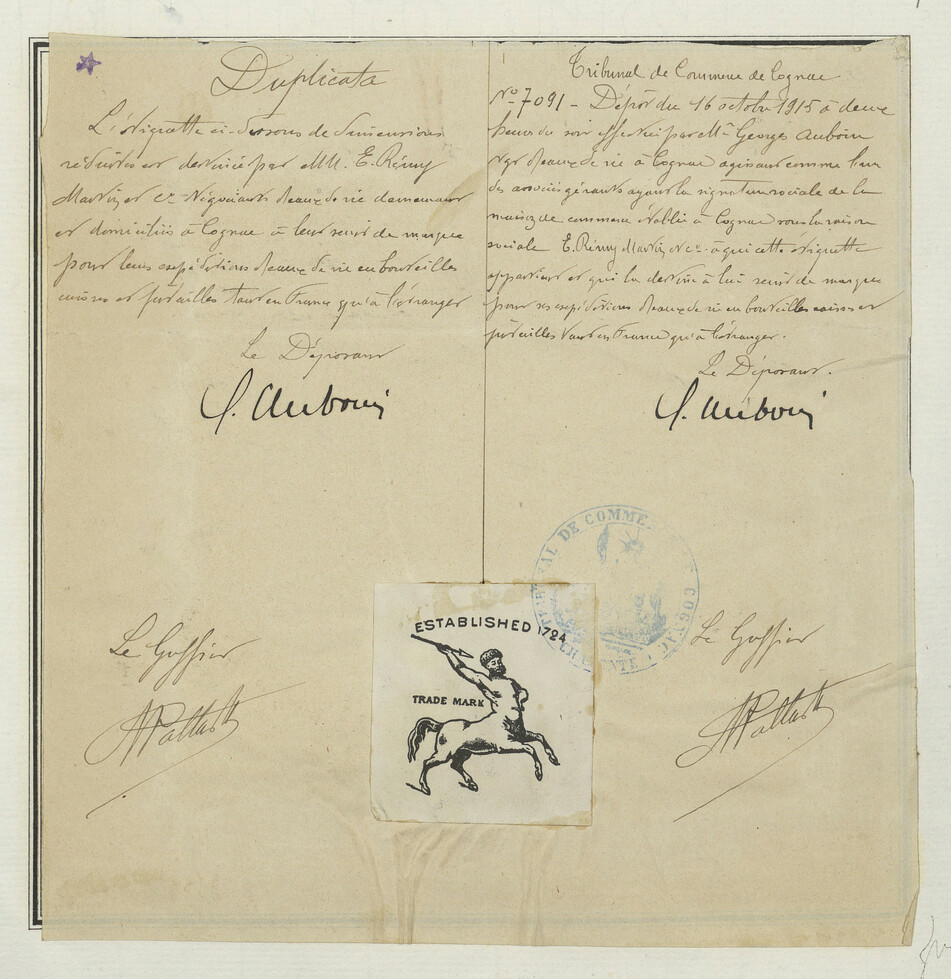 Duplicata
L'étiquette ci-dessous de dimensions
réduites est destinée par MM. E. Rémy
Martin et Cie Négociants d'eaux de vie demeurant
et domiciliés à Cognac à leur servir de marque
pour leurs expéditions d'eaux de vie en bouteilles
caisses et futailles tant en France qu'à l'étranger
Le Déposant
G. Auboin
Le Greffier
Tribunal de Commerce de Cognac
No 7091 - Dépôt du 16 octobre 1915 à deux
heures du soir effectué par Mr Georges Auboin
Ngt d'eaux de vie à Cognac agissant comme l'un
des associés gérants ayant la signature sociale de la
maison de commerce établie à Cognac sous la raison
sociale E. Rémy Martin et Cie à qui cette étiquette
appartient et qui la destine à lui servir de marque
pour ses expéditions d'eaux de vie en bouteilles caisses et
futailles tant en France qu'à l'étranger.
Le Déposant.
G. Auboin
TRIBUNAL DE COMMERCE COGNAC CHARENTE
Le Greffier
ESTABLISHED 1724
TRADE MARK